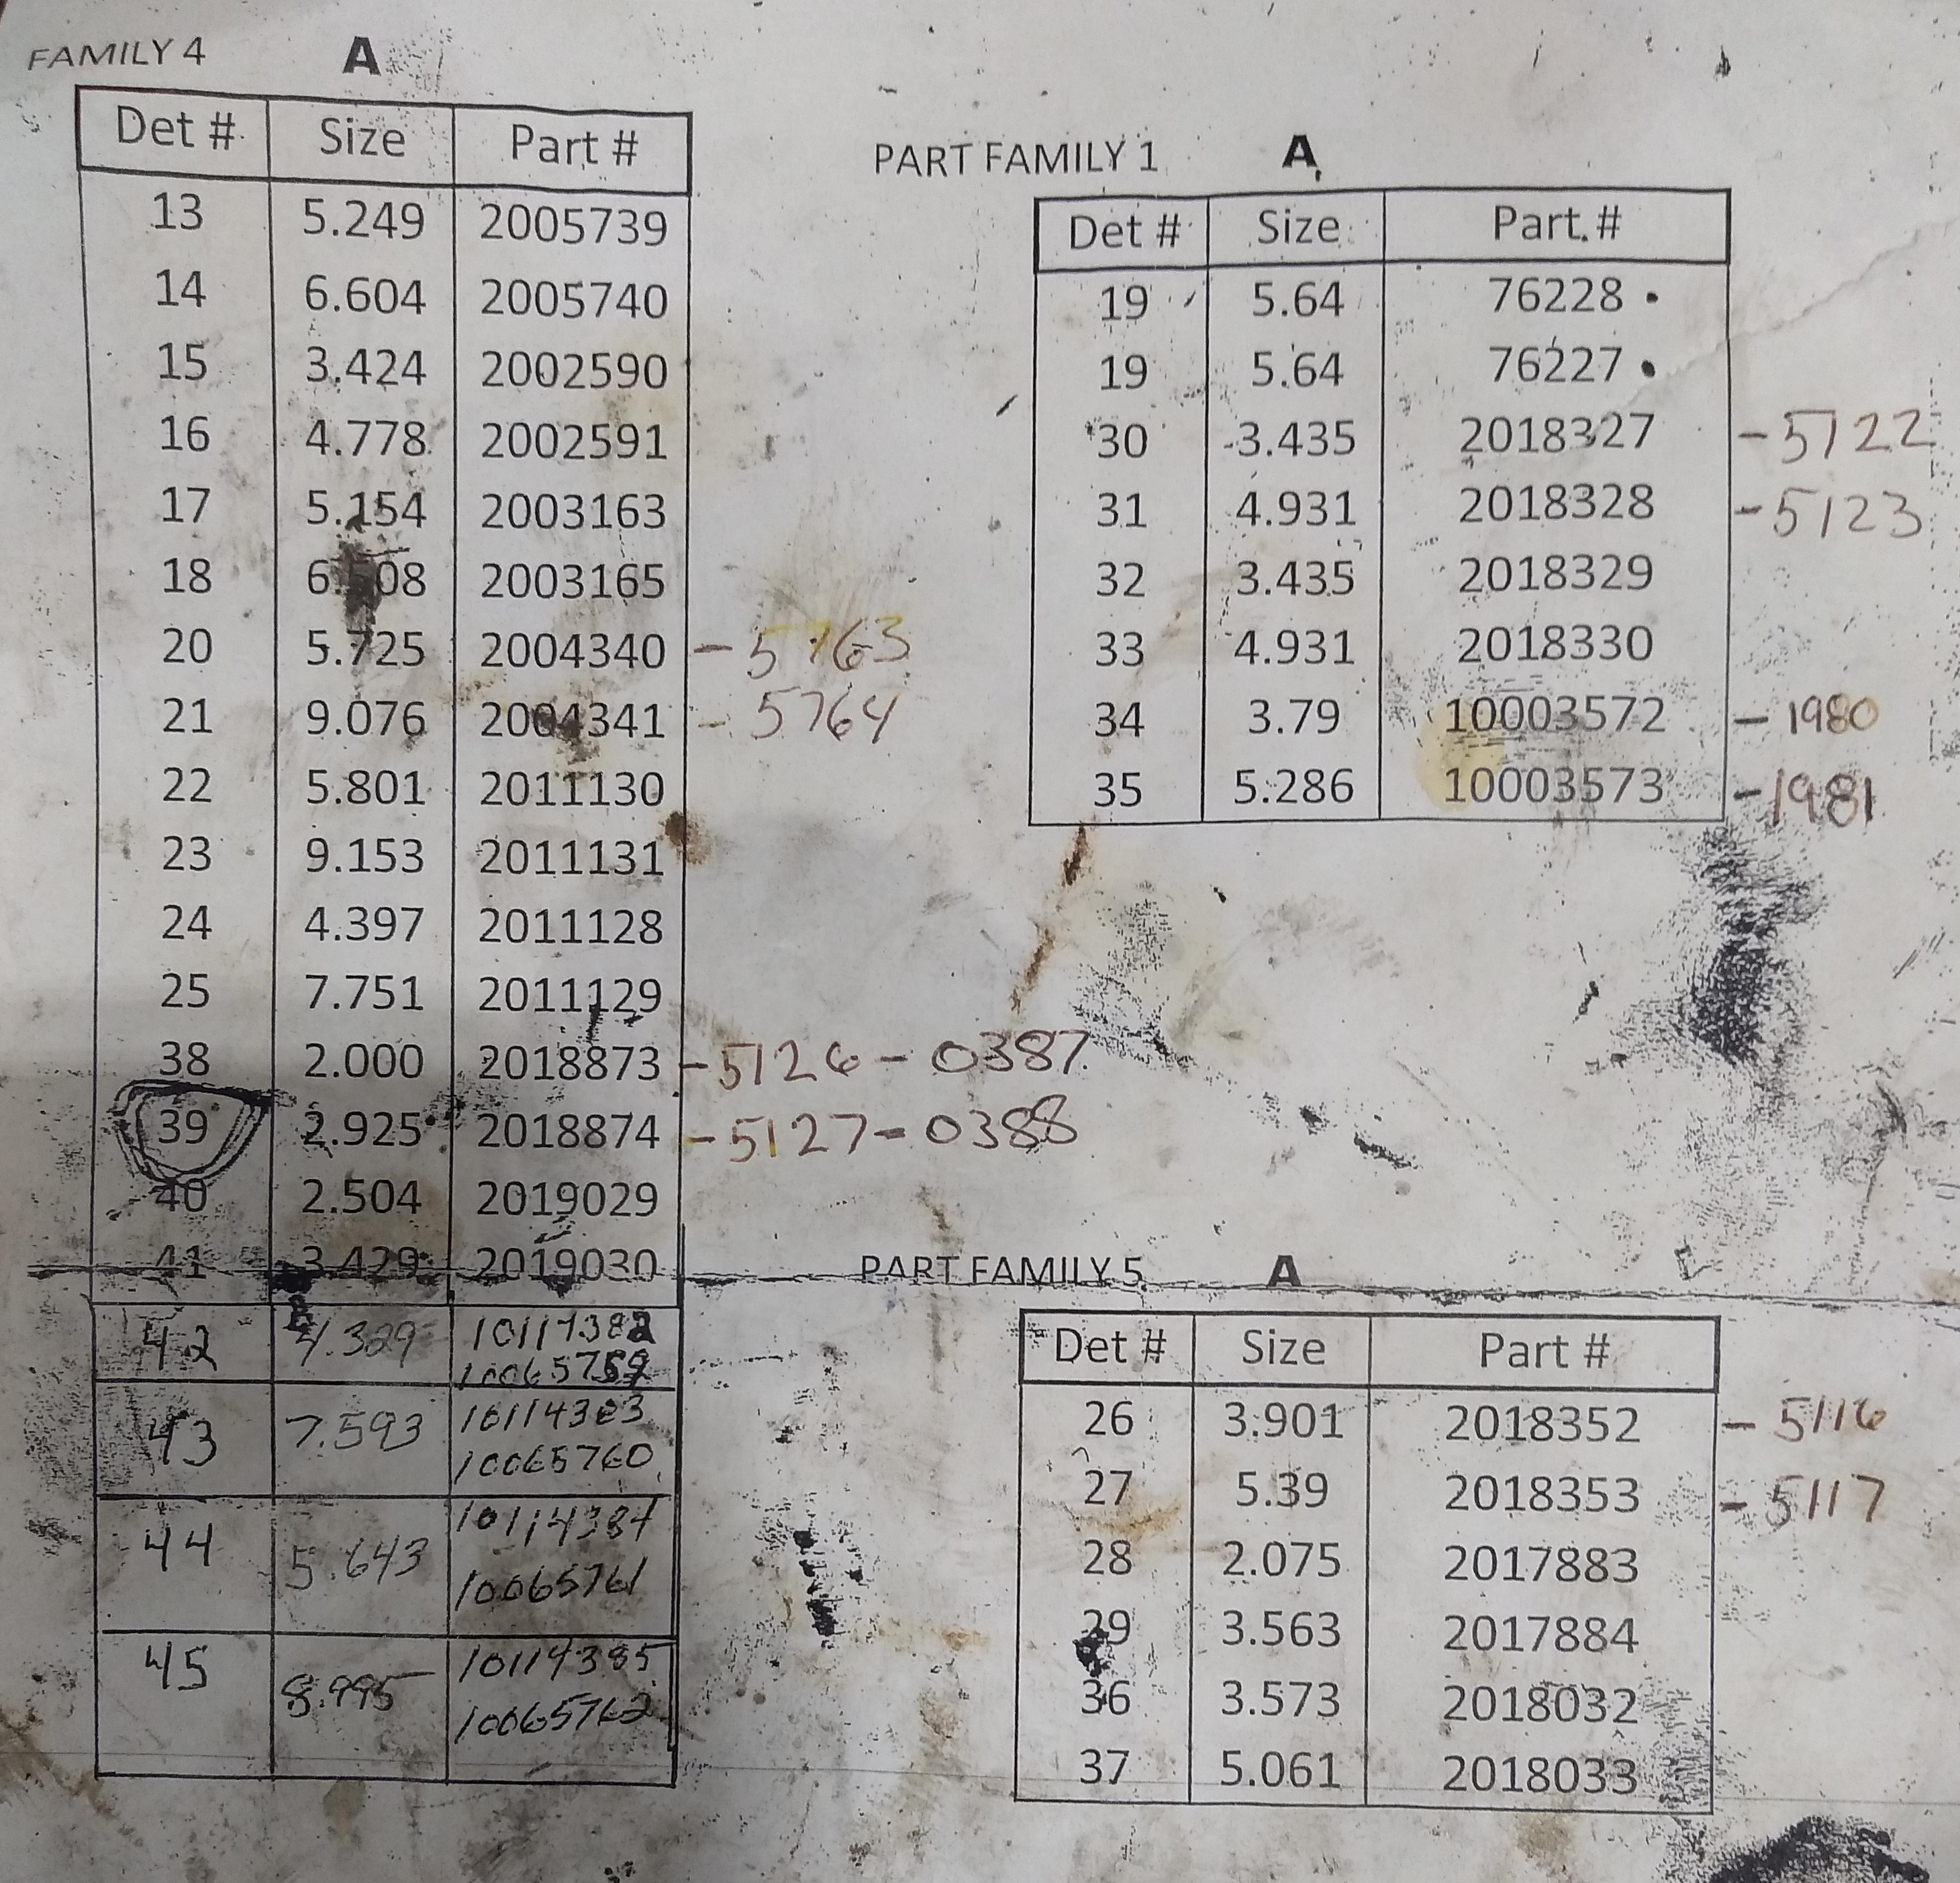 FAMILY 4 A
Det # Size Part #
13 5.249 2005739
14 6.604 2005740
15 3.424 2002590
16 4.778 2002591
17 5.154 2003163
18 2003165
20 5.725 2004340 - 5763
21 9.076 2004341 - 5764
22 5.801 2011130
23 9.153 2011131
24 4.397 2011128
25 7.751 2011129
38 2.000 2018873 - 5126 - 0387
39 2.925 2018874 - 5127 - 0388
40 2.504 2019029
41 3.429 2019030
42 4.329 10114382
10065759
43 7.593 10114383
10065760
44 5.643 10114384
10065761
45 8.995 10114385
10065762
PART FAMILY 1 A
Det # Size Part #
19 5.64 76228
19 5.64 76227
30 3.435 2018327 - 5122
31 4.931 2018328 - 5123
32 3.435 2018329
33 4.931 2018330
34 3.79 10003572 - 1980
35 5.286 10003573 - 1981
PART FAMILY 5 A
Det # Size Part #
26 3.901 2018352 - 5116
27 5.39 2018353 - 5117
28 2.075 2017883
29 3.563 2017884
36 3.573 2018032
37 5.061 2018033